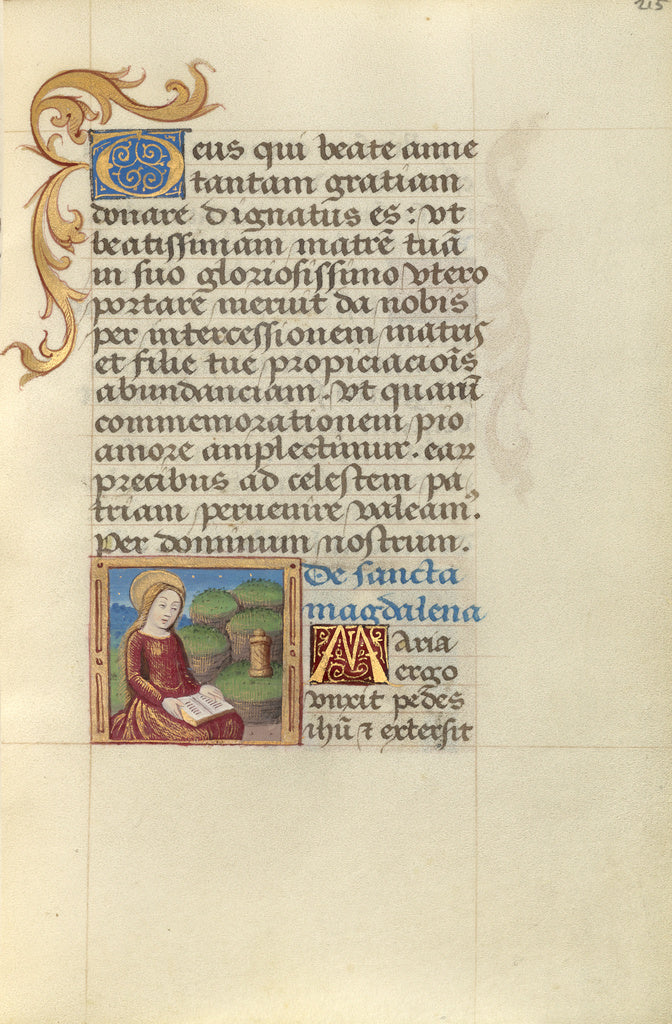 215
Deus qui beate anne
tantam gratiam
donare dignatus es: vt
beatissimam matrē tuā
in suo gloriosissimo vtero
portare meruit da nobis
per intercessionem matris
et filie tue propiciaciōis
abundanciam. vt quarū
commemorationem pio
amore amplectimur. eaꝝ
precibus ad celestem pa
triam peruenire valeamꝰ.
Per dominum nostrum.
De sancta
magdalena
Maria
ergo
vnxit pedes
ihū ⁊ extersit